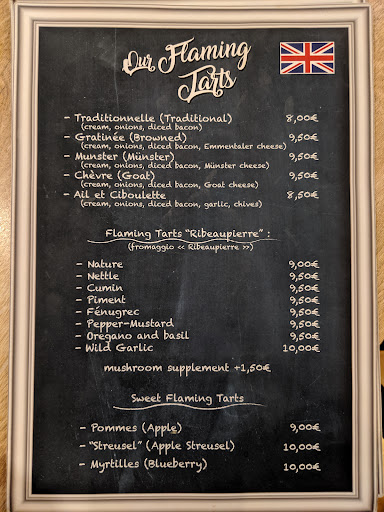 Our Flaming
Tarts
- Traditionnelle (Traditional) 8,00€
(cream, onions, diced bacon)
- Gratinée (Browned) 9,50€
(cream, onions, diced bacon, Emmentaler cheese)
- Munster (Münster) 9,50€
(cream, onions, diced bacon, Münster cheese)
- Chèvre (Goat) 9,50€
(cream, onions, diced bacon, Goat cheese)
- Ail et Ciboulette 8,50€
(cream, onions, diced bacon, garlic, chives)
Flaming Tarts "Ribeaupierre" :
(fromaggio << Ribeaupierre >>)
- Nature 9,00€
- Nettle 9,50€
- Cumin 9,50€
- Piment 9,50€
- Fénugrec 9,50€
- Pepper-Mustard 9,50€
- Oregano and basil 9,50€
- Wild Garlic 10,00€
mushroom supplement +1,50€
Sweet Flaming Tarts
- Pommes (Apple) 9,00€
- "Streusel" (Apple Streusel) 10,00€
- Myrtilles (Blueberry) 10,00€